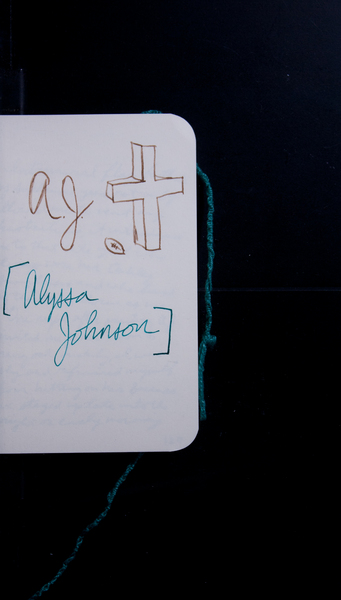 A.J.
[Alyssa
Johnson]